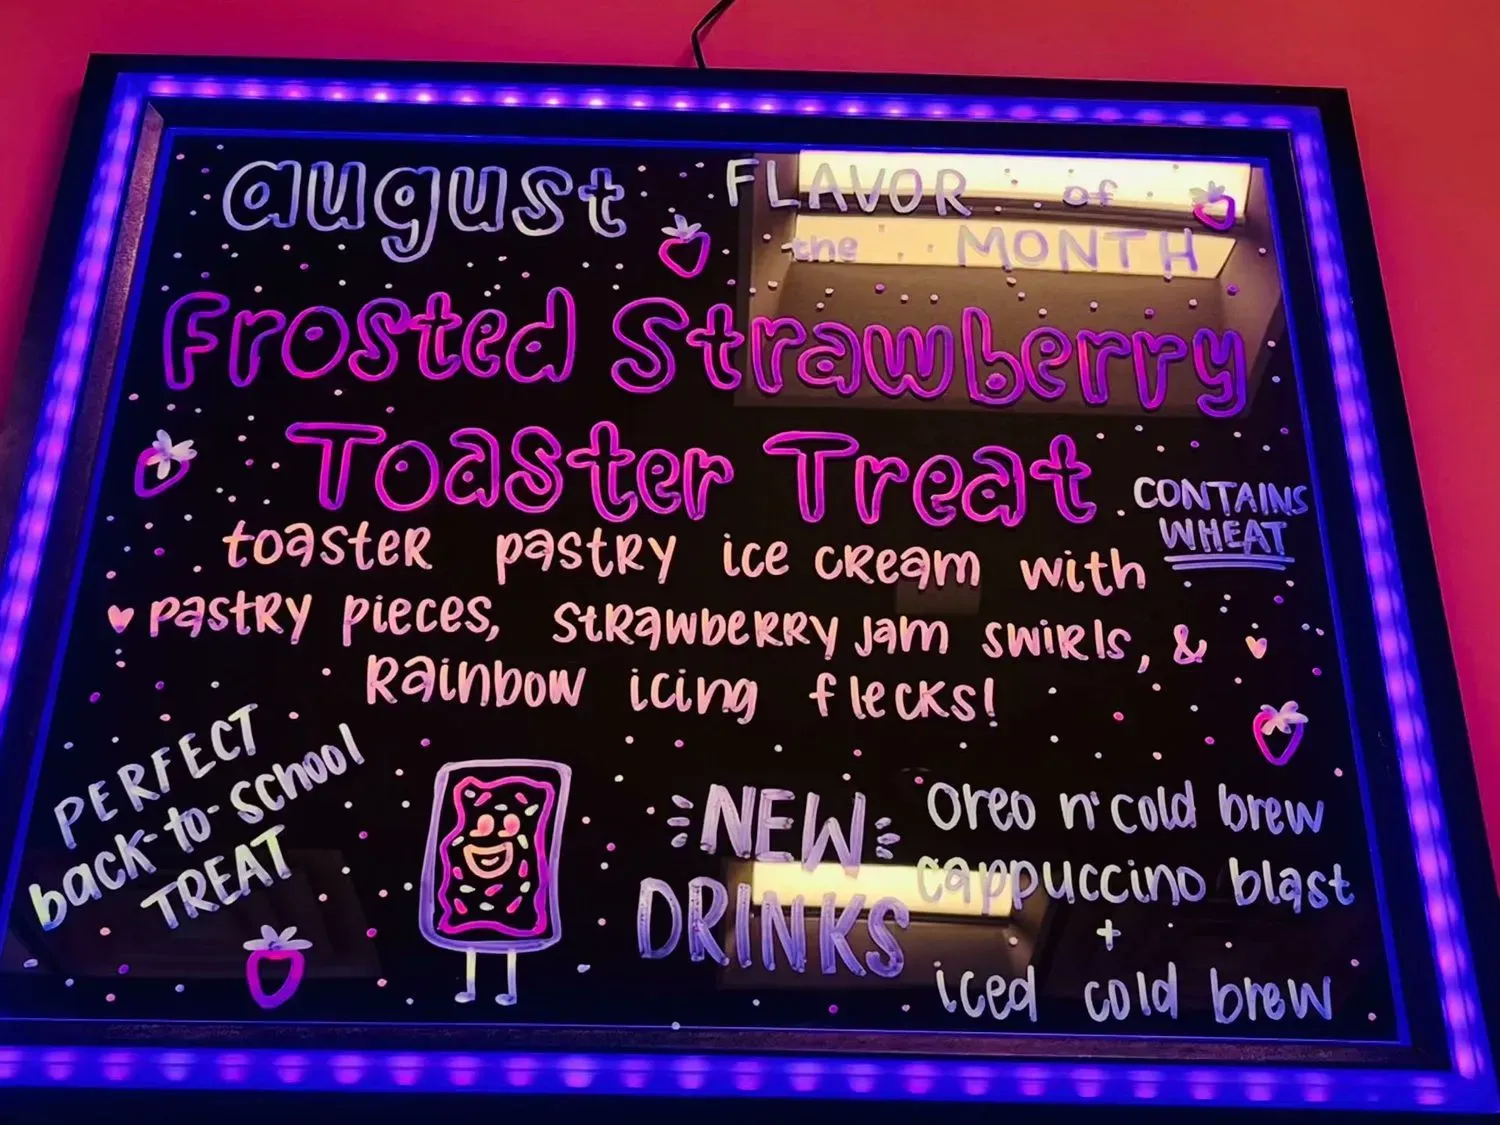 august FLAVOR of
the MONTH
Frosted Strawberry
Toaster Treat
CONTAINS
WHEAT
toaster pastry ice cream with
pastry pieces, strawberry jam swirls, &
Rainbow icing flecks!
PERFECT
back-to-school
TREAT
NEW
DRINKS
Oreo n' cold brew
cappuccino blast
+
iced cold brew